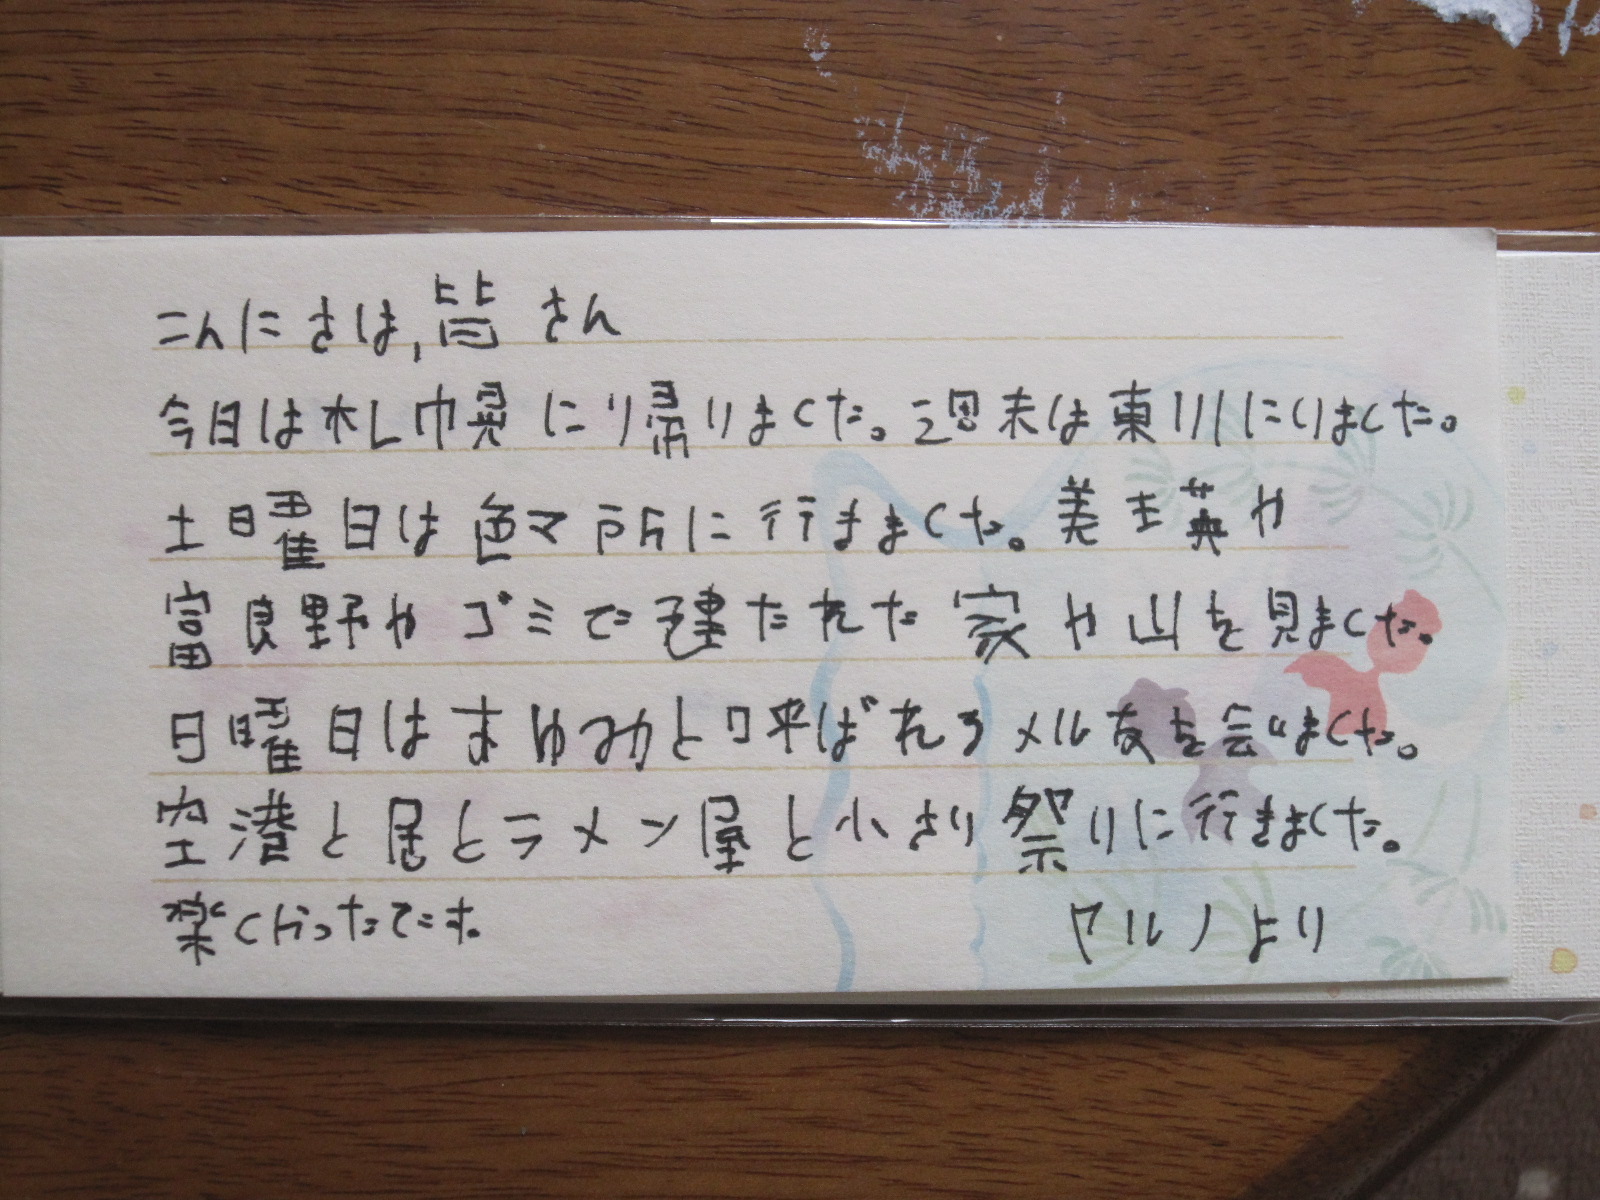 こんにさは,皆さん
今日は札幌にり帰りました。週末は東川にりました。
土曜日は色マ所に行きました。美士英や
富良野やゴミで建たれた家や山を見ました。
日曜日はまゆみと呼ばれるメル友を会いました。
空港と居とラメン屋と小さり祭りに行きました。
楽くかったです。 アルノより